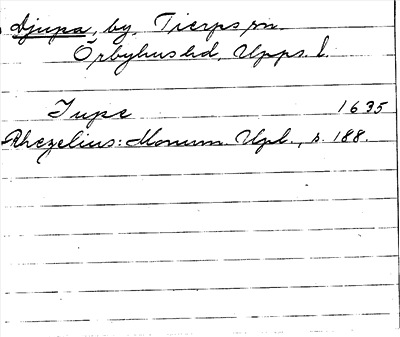 Djupa, by, Tierps sn.
Örbyhus hd, Upps. l.
Jupe 1635
Rhezelius: Monum. Upl., s. 188.